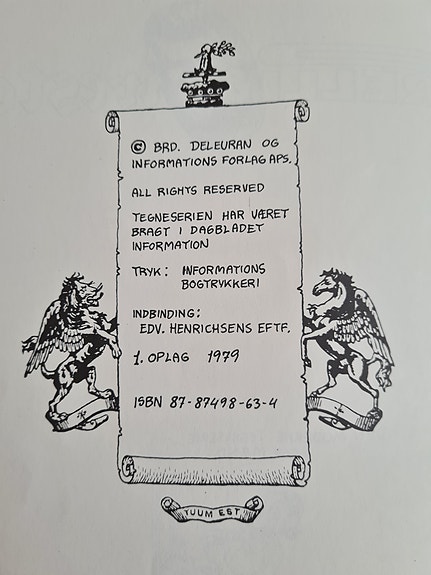 © BRD. DELEURAN OG
INFORMATIONS FORLAG APS.
ALL RIGHTS RESERVED
TEGNESERIEN HAR VÆRET
BRAGT I DAGBLADET
INFORMATION
TRYK: INFORMATIONS
BOGTRYKKERI
INDBINDING:
EDV. HENRICHSENS EFTF.
1. OPLAG 1979
ISBN 87-87498-63-4
TUUM EST